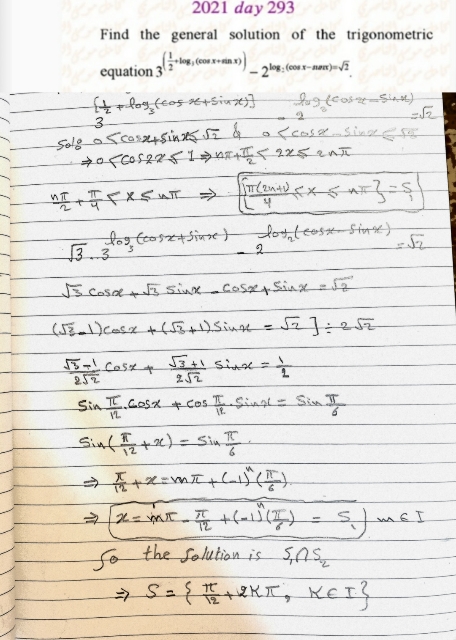 2021 day 293
Find the general solution of the trigonometric
equation 3^(1/2+log₃(cos x+sin x)) − 2^log₂(cos x−sin x)=√2
3^[1/2 + log₃(cosx+sinx)] - 2^log₂(cosx-sinx) = √2
Solo 0<cosx+sinx≤√2 & 0<cosx-sinx≤√2
⇒ 0<cos2x≤1 ⇒ nπ+π/2<2x≤2nπ
nπ/2 + π/4 < x ≤ nπ ⇒ {π(2n+1)/4 < x ≤ nπ} = S₁
√3 . 3^log₃(cosx+sinx) - 2^log₂(cosx-sinx) = √2
√3 cosx + √3 sinx - cosx + sinx = √2
(√3-1)cosx + (√3+1)sinx = √2 ] ÷ 2√2
√3-1/2√2 cosx + √3+1/2√2 sinx = 1/2
Sin π/12 . cosx + cos π/12 . sinx = sin π/6
Sin(π/12 + x) = sin π/6 .
⇒ π/12 + x = nπ + (-1)ⁿ(π/6)
⇒ x = nπ - π/12 + (-1)ⁿ(π/6) = S₁ n∈I
So the solution is S₁∩S₂
⇒ S = {π/12 + 2Kπ, K∈I}